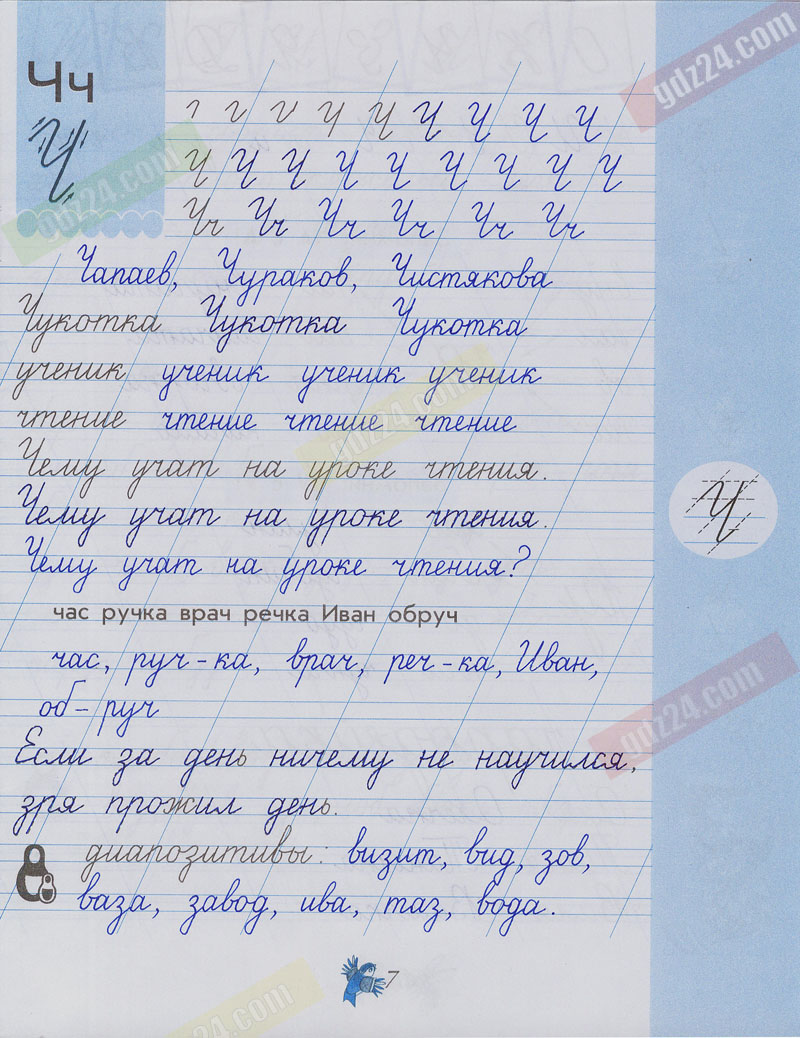 Чч
Ч
г г г Ч Ч Ч Ч Ч Ч
Ч Ч Ч Ч Ч Ч Ч Ч Ч
Чч Чч Чч Чч Чч Чч
Чапаев, Чураков, Чистякова
Чукотка Чукотка Чукотка
ученик ученик ученик ученик
чтение чтение чтение чтение
Чему учат на уроке чтения.
Чему учат на уроке чтения.
Чему учат на уроке чтения?
Ч
час ручка врач речка Иван обруч
час, руч-ка, врач, реч-ка, Иван,
об-руч
Если за день ничему не научился,
зря прожил день.
диапозитивы: визит, вид, зов,
ваза, завод, ива, таз, вода.
7
gdz24.com
gdz24.com
gdz24.com
gdz24.com
gdz24.com